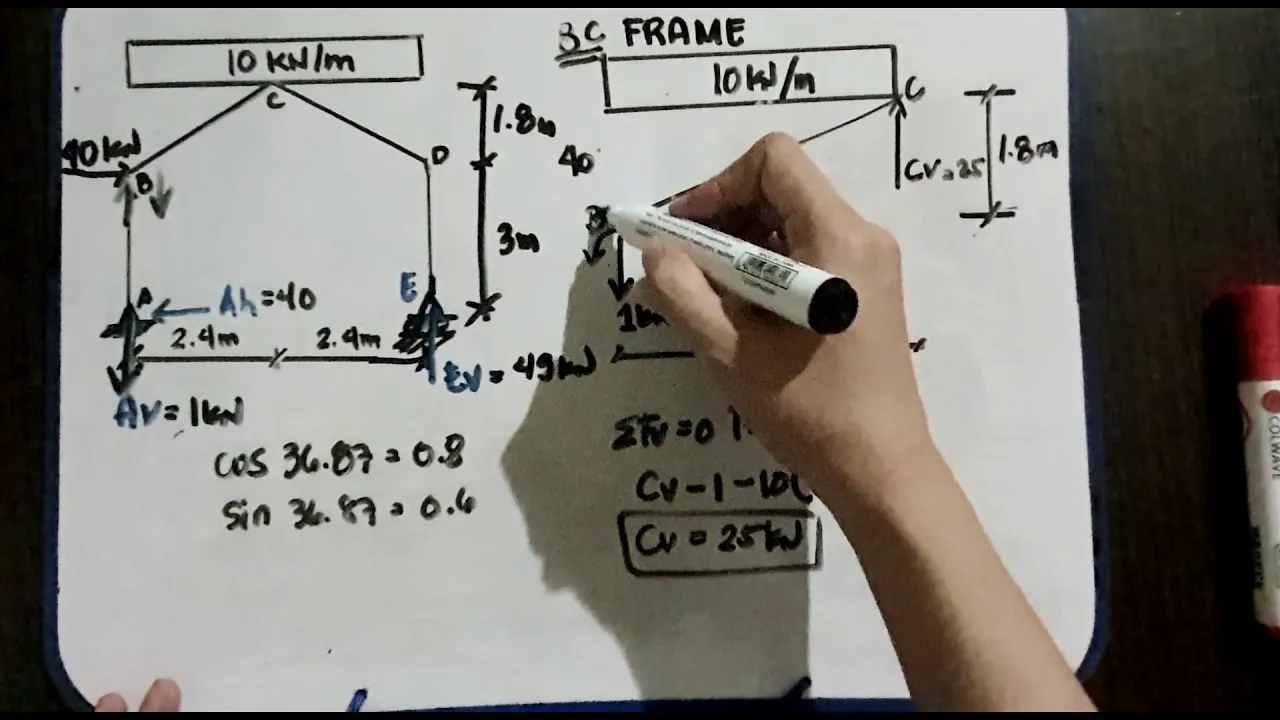 10 KN/m
C
1.8m
40 KN
B
D
3m
A
Ah = 40
E
2.4m
2.4m
Av = 1 KN
Ev = 49 KN
cos 36.87 = 0.8
sin 36.87 = 0.6
BC FRAME
10 KN/m
C
40
Cv = 25
1.8m
B
ΣFv = 0
Cv - 1 - 10(
Cv = 25 KN
COLWAVE